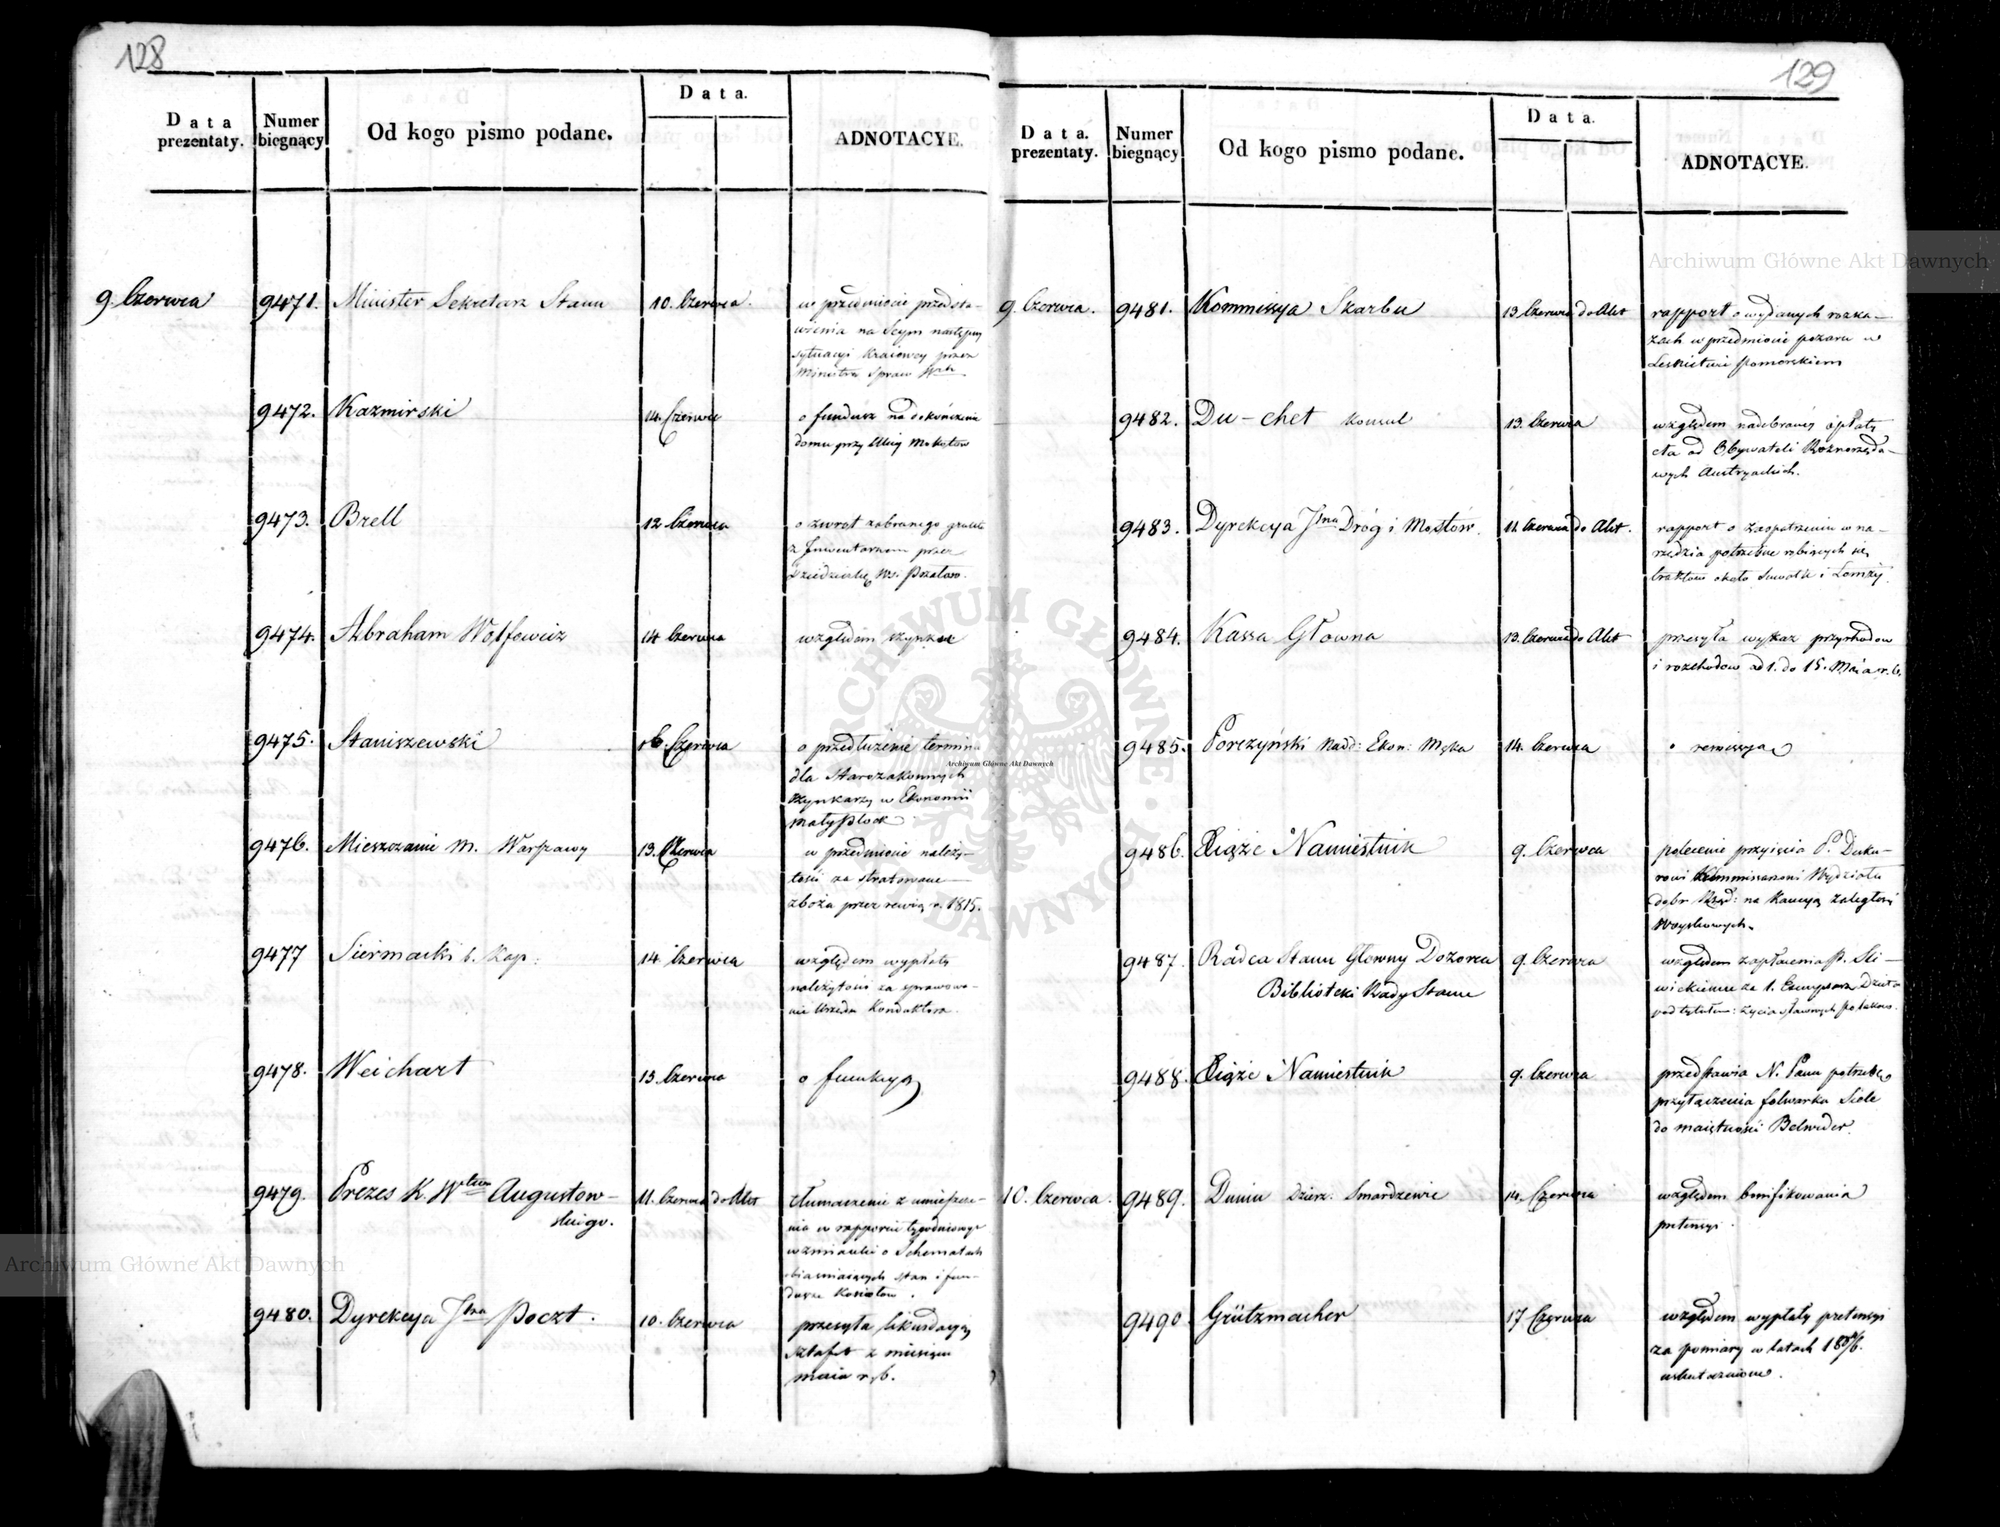 128
Data
prezentaty.
Numer
biegnący
Od kogo pismo podane.
Data.
ADNOTACYE.
9. Czerwca
9471.
Minister Sekretarz Stanu
10. Czerwca.
w przedmiocie przedsta-
wienia na Seym następny
sytuacyi kraiowey przez
Ministra Spraw
9472.
Kazmirski
14. Czerwca
o fundusz na dokończenie
domu przy Ulicy Mokotow
9473.
Brell
12 Czerwca
o zwrot zabranego gruntu
z Inwentarzem przez
9474.
Abraham Wolfowicz
14 Czerwca
względem szynku
9475.
Staniszewski
16. Czerwca
o przedłużenie termina
dla Starozakonnych
szynkarzy w Ekonomii
Małypłock
9476.
Mieszczanie M. Warszawy
13. Czerwca
w przedmiocie należy-
tości za stratowane
zboża przez rewią r. 1815.
9477
Siermacki b. Kap:
14 Czerwca
względem wypłaty
należytości za sprawowa-
nie Urzędu Konduktora.
9478.
Weichart
13. Czerwca
o funkcyą
9479.
Prezes K. Wztwa Augustow-
skiego.
11. Czerwca do Akt
tłumaczenie z umieszcze-
nia w rapporcie tygodniowym
wzmianki o Schematach
obiasniaiących stan i fun-
dusze Kościołow.
9480.
Dyrekcya Jlna Poczt.
10. Czerwca
przesyła likwidacyą
sztafet z miesiąca
maia r. b.
129
Data.
prezentaty.
Numer
biegnący
Od kogo pismo podane.
Data.
ADNOTACYE.
9. Czerwca.
9481.
Kommissya Skarbu
13 Czerwca do Akt
rapport o wydanych rozka-
zach w przedmiocie pożaru w
Pomorskiem
9482.
Du-chet Konsul
13. Czerwca
względem nadebraney opłaty
cła od Obywateli
Austryackich.
9483.
Dyrekcya Jlna Dróg i Mostów.
11. Czerwca do Akt.
rapport o zaopatrzeniu w na-
rzędzia potrzebne robiących się
traktow około Suwałk i Łomży
9484.
Kassa Głowna
13. Czerwca do Akt
przesyła wykaz przychodow
i rozchodow od 1. do 15. Maia r. b.
9485.
Porczyński Nadd: Ekon: Męka
14. Czerwca
o remissyą
9486.
Xiąże Namiestnik
9. Czerwca
polecenie przyięcia P. Duku-
rowi Kommissarzowi Wydziału
dobr Rząd: na Kaucyą zaległości
Woyskowych.
9487.
Radca Stanu Głowny Dozorca
Biblioteki Rady Stanu
9. Czerwca
względem zapłacenia P. Sli-
wickiemu za 1. Exemplarz Dzieła
pod tytułem: życia sławnych Polakow.
9488.
Xiąże Namiestnik
9. Czerwca
przedstawia N. Panu potrzebę
przyłączenia folwarku Siele
do maiętności Belweder.
10. Czerwca.
9489.
Dunin Dzierz. Smardzewic
14. Czerwca
względem bonifikowania
pretensyi.
9490
Grützmacher
17 Czerwca
względem wypłaty pretensyi
za pomiary w latach 1805/6.
uskutecznione.
Archiwum Główne Akt Dawnych
Archiwum Główne Akt Dawnych
Archiwum Główne Akt Dawnych
ARCHIWUM GŁÓWNE AKT DAWNYCH